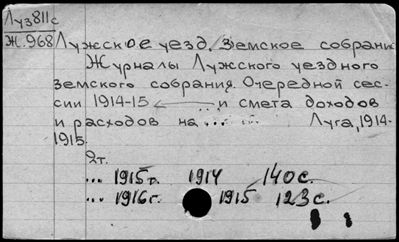 Луз811с
Ж.968
Лужское уезд. Земское собрание
Журналы Лужского уездного
земского собрания. Очередной сес-
сии 1914-15 и смета доходов
и расходов на ... ... Луга, 1914-
1915.
2т.
... 1915г. 1914 140 с.
... 1916г. 1915 123 с.